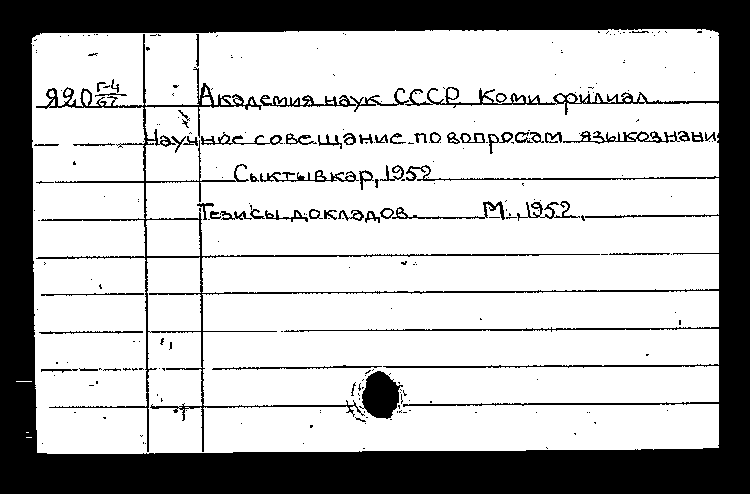 Я20 Г-4/67 Академия наук СССР. Коми филиал
Научное совещание по вопросам языкознани
Сыктывкар, 1952
Тезисы докладов. М., 1952.